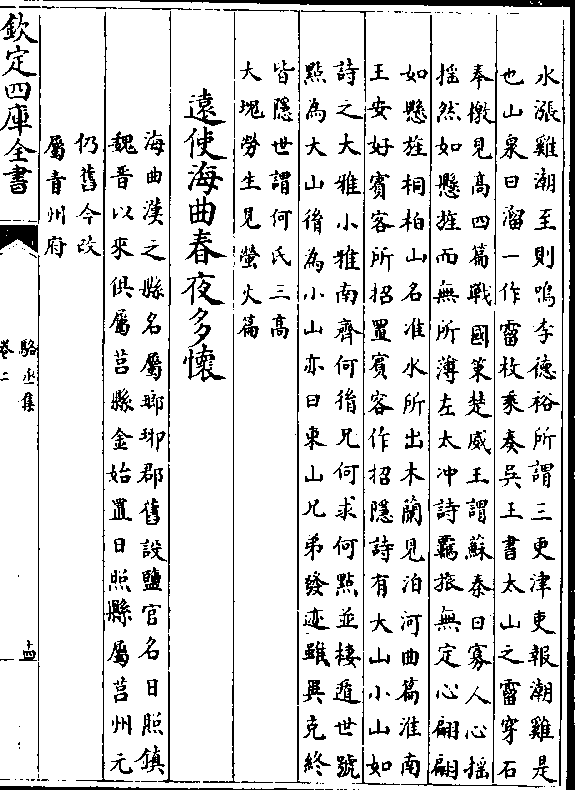 水漲雞潮至則鳴李德裕所謂三更津吏報潮雞是
也山泉曰溜一作霤枚乘奏吳王書太山之霤穿石
奉檄見髙四篇戰國策楚威王謂蘇秦曰寡人心搖
搖然如懸旌而無所薄左太冲詩羈旅無定心翩翩
如懸旌桐柏山名淮水所出木蘭見泊河曲篇淮南
王安好賓客所招置賓客作招隱詩有大山小山如
詩之大雅小雅南齊何㣧兄何求何㸃並棲遁世號
㸃為大山㣧為小山亦曰東山兄弟發迹雖異克終
皆隱世謂何氏三髙
大塊勞生見螢火篇
遠使海曲春夜多懷
海曲漢之縣名屬瑯琊郡舊設鹽官名日照鎮
魏晉以來俱屬莒縣金始置日照縣屬莒州元
仍舊今改
屬青州府
欽定四庫全書
駱丞集
卷二
十四